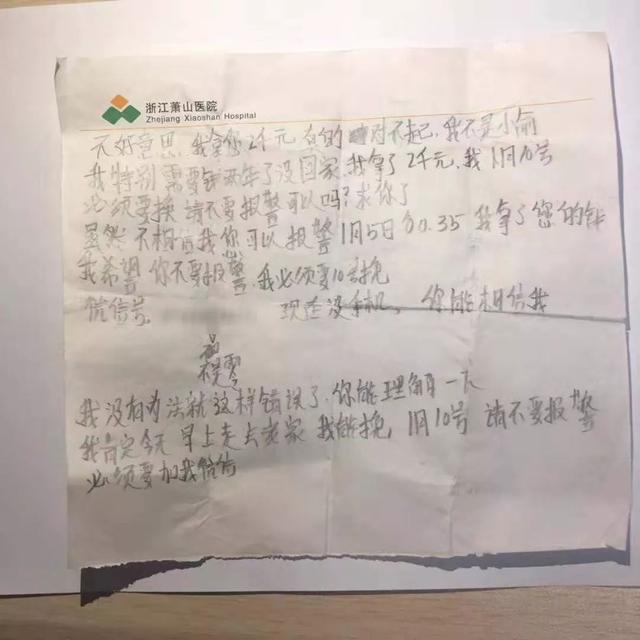 浙江萧山医院
Zhejiang Xiaoshan Hospital
不好意思 我拿您2千元 对不起, 我不是小偷
我特别需要钱 两年了没回家, 我拿了2千元, 我1月10号
必须要换 请不要报警可以吗? 求你了
虽然不相信我您可以报警 1月5日 0.35 我拿了您的钱
我希望 你不要报警 我必须要10号挽
信号 现在没手机, 你能相信我
我没有办法就这样错误了, 你能理解一下
我肯定今天早上走去老家 我能挽, 1月10号 请不要报警
必须要加我信